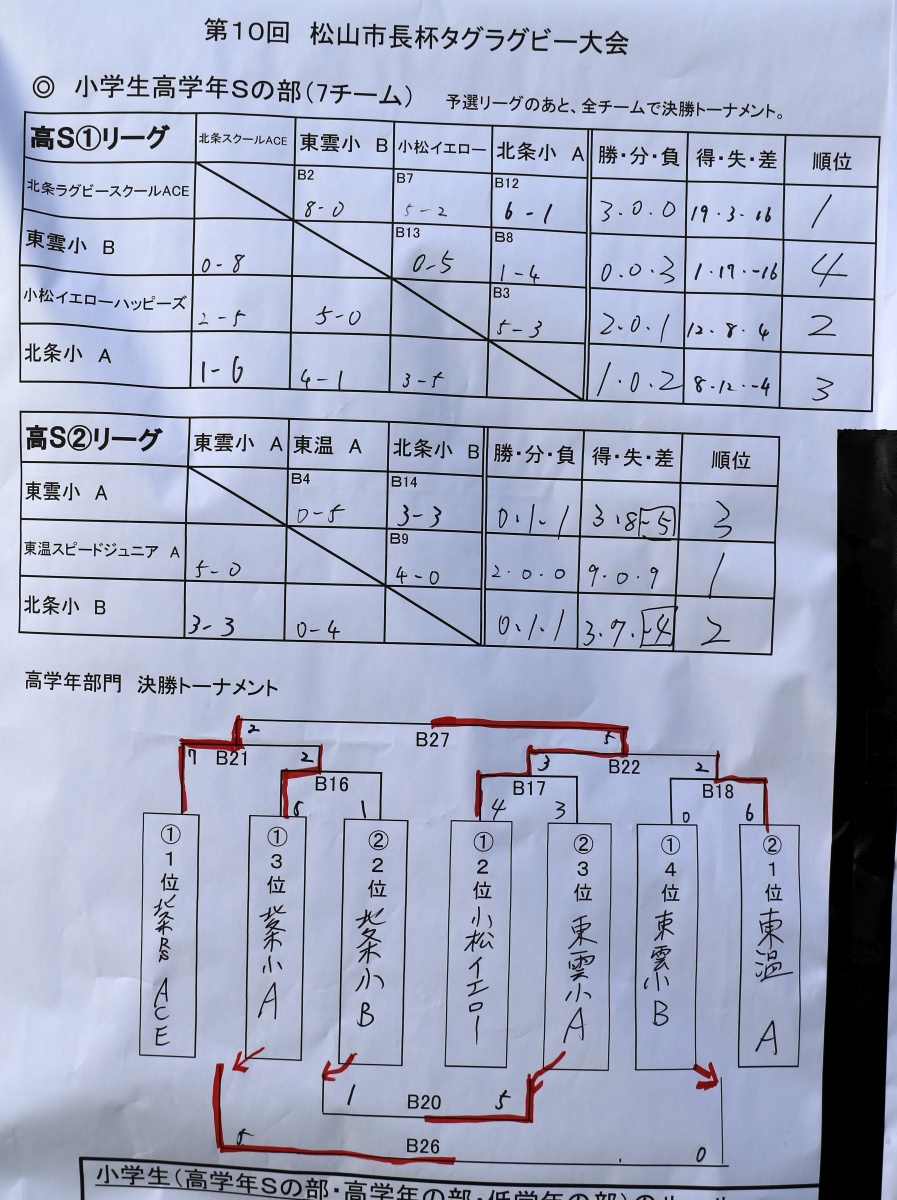 第10回 松山市長杯タグラグビー大会
◎ 小学生高学年Sの部(7チーム) 予選リーグのあと、全チームで決勝トーナメント。
高S①リーグ 北条スクールACE 東雲小 B 小松イエロー 北条小 A 勝・分・負 得・失・差 順位
北条ラグビースクールACE B2 8-0 B7 5-2 B12 6-1 3.0.0 19.3.16 1
東雲小 B 0-8 B13 0-5 B8 1-4 0.0.3 1.17.-16 4
小松イエローハッピーズ 2-5 5-0 B3 5-3 2.0.1 12.8.4 2
北条小 A 1-6 4-1 3-5 1.0.2 8.12.-4 3
高S②リーグ 東雲小 A 東温 A 北条小 B 勝・分・負 得・失・差 順位
東雲小 A B4 0-5 B14 3-3 0.1.1 3.8.-5 3
東温スピードジュニア A 5-0 B9 4-0 2.0.0 9.0.9 1
北条小 B 3-3 0-4 0.1.1 3.7.-4 2
高学年部門 決勝トーナメント
2 B27 5
7 B21 2 3 B22 2
B16 B17 B18
1 4 3 0 6
①1位 北条RS ACE
①3位 北条小A
②2位 北条小B
①2位 小松イエロー
②3位 東雲小A
①4位 東雲小B
②1位 東温 A
1 B20 5
5 B26 0
小学生(高学年Sの部・高学年の部・低学年の部)のルール